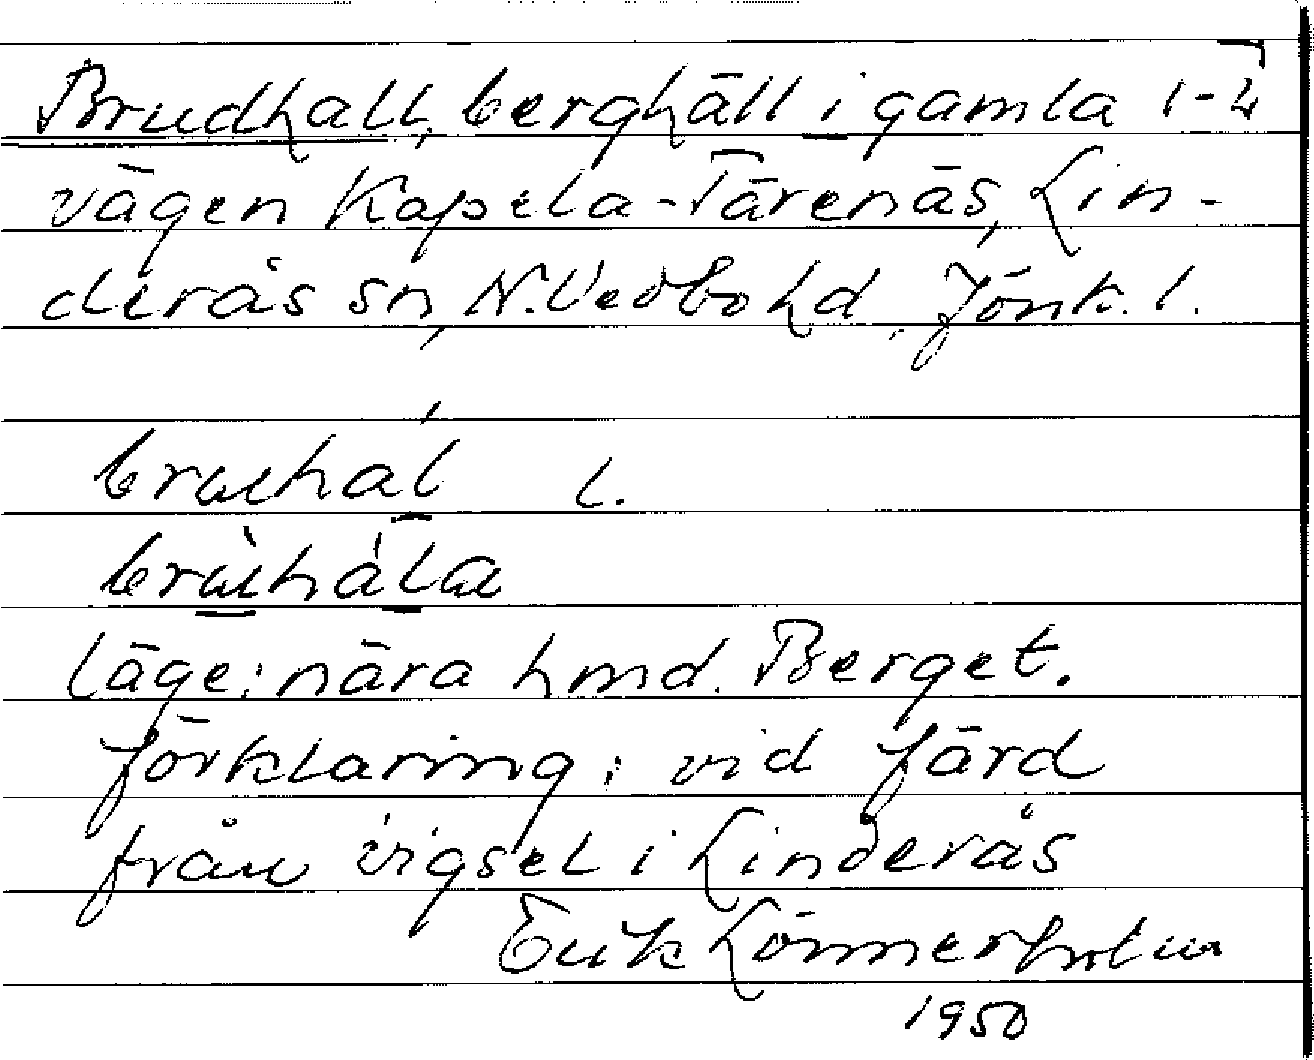 Brudhall, berghäll i gamla 1-4
vägen Kapela-Tärenäs, Lin-
derås sn, N. Vedbo hd, Jönk. l.
bruhal l.
brùhála
läge: nära hmd. Berget.
förklaring: vid färd
från vigsel i Linderås
Erik Lönnerholm
1950